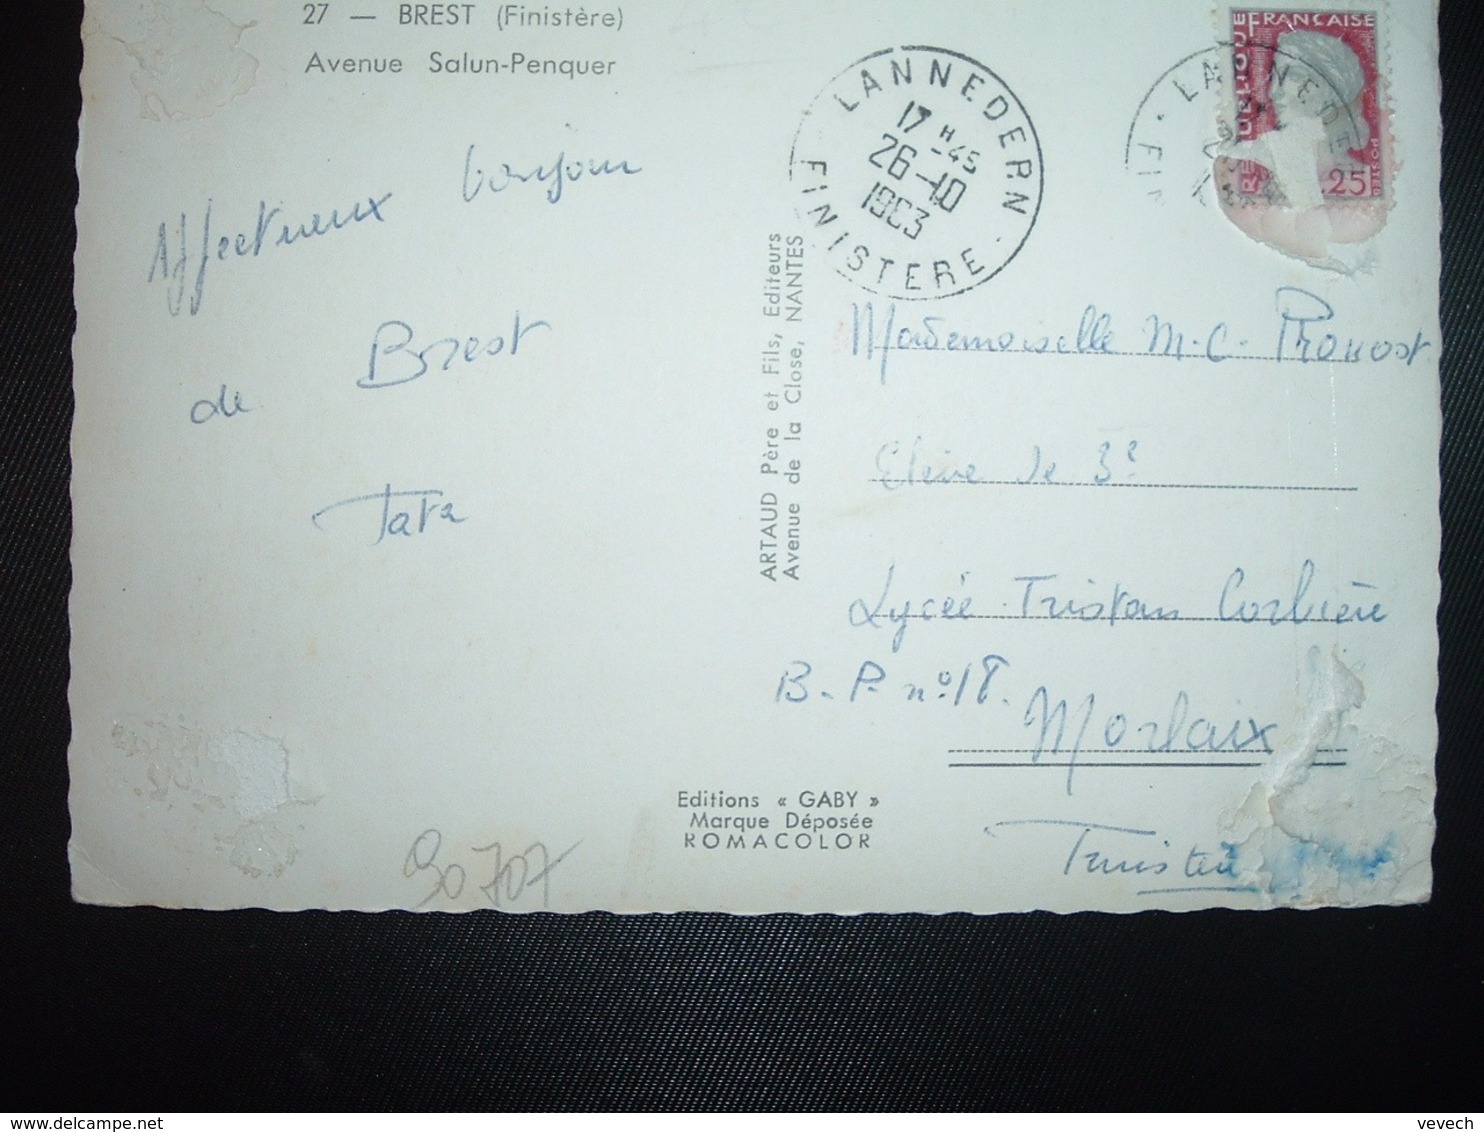 27 — BREST (Finistère)
Avenue Salun-Penquer
Affectueux bonjour
de Brest
Tata
ARTAUD Père et Fils, Editeurs
Avenue de la Close, NANTES
LANNEDERN
17 H -45
26-10
1963
FINISTERE
LANNEDE
FIN
FRANÇAISE
25
POSTES
Mademoiselle M-C- Provost
Elève de 3e
Lycée Tristan Corbière
B.P. n° 18.
Morlaix
Finistère
Editions « GABY »
Marque Déposée
ROMACOLOR
90707
vevech